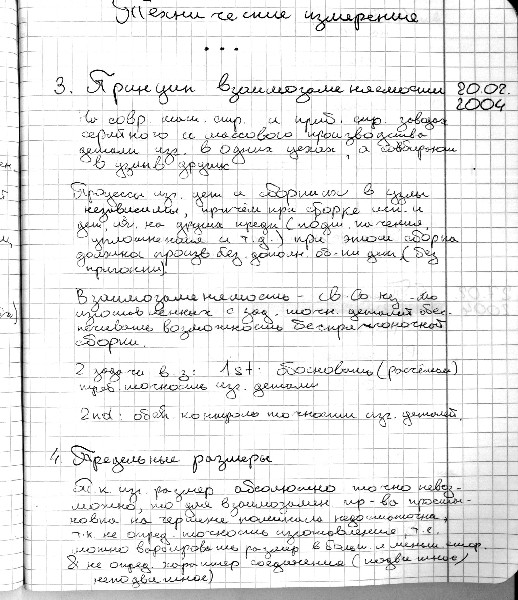 Технические измерение
...
3. Принцип взаимозаменяемости 20.02.
2004
На совр. маш. стр. и приб. стр. заводах
серийного и массового производства
детали изг. в одних цехах, а собирают
в узлы в других
Процессы изг. дет и сборки их в узлы
независимы, причём при сборке исп. и
дет. изг. на других предп (подш. качения,
уплотнения и т.д.) при этом сборка
должна произв без дополн. об-ки дет. (без
пригонки)
Взаимозаменяемость - св-во нез-мо
изготовленных с зад. точн. деталей обес-
печивать возможность беспригоночной
сборки.
2 задачи вз: 1st: обосновать (расчётом)
треб точность изг. детали
2nd: обесп контроль точности изг. деталей.
4. Предельные размеры
Т. к изг. размер абсолютно точно невоз-
можно, то для взаимозамен пр-ва простан-
новка на чертеже номинала недостаточна,
т.к не опред точность изготовления, т.е.
можно варьировать размер в больш. и меньш стор.
& не опред. характер соединения (подвижное/
неподвижное)